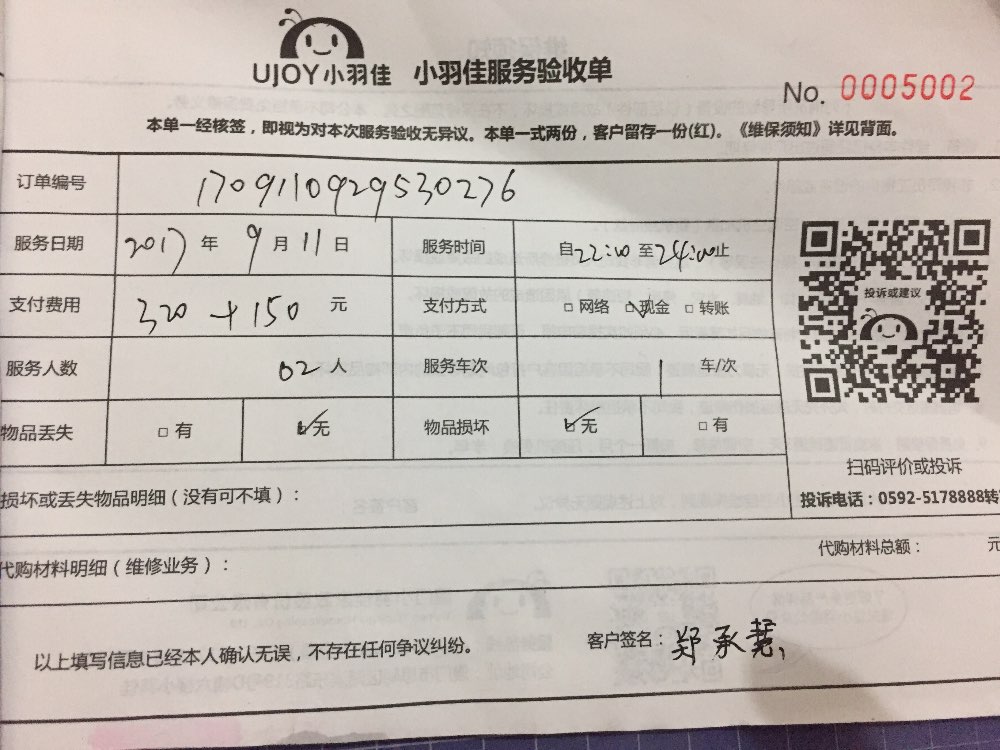 UJOY小羽佳 小羽佳服务验收单
No. 0005002
本单一经核签，即视为对本次服务验收无异议。本单一式两份，客户留存一份(红)。《维保须知》详见背面。
订单编号 1709110929530276
服务日期 2017 年 9 月 11 日 服务时间 自22:00 至24:00止
支付费用 320+150 元 支付方式 □ 网络 □ 现金 □ 转账
投诉或建议
服务人数 02 人 服务车次 1 车/次
物品丢失 □ 有 □ 无 物品损坏 □ 无 □ 有
扫码评价或投诉
损坏或丢失物品明细（没有可不填）：
投诉电话：0592-5178888转
代购材料明细（维修业务）： 代购材料总额： 元
以上填写信息已经本人确认无误，不存在任何争议纠纷。 客户签名：郑承慧